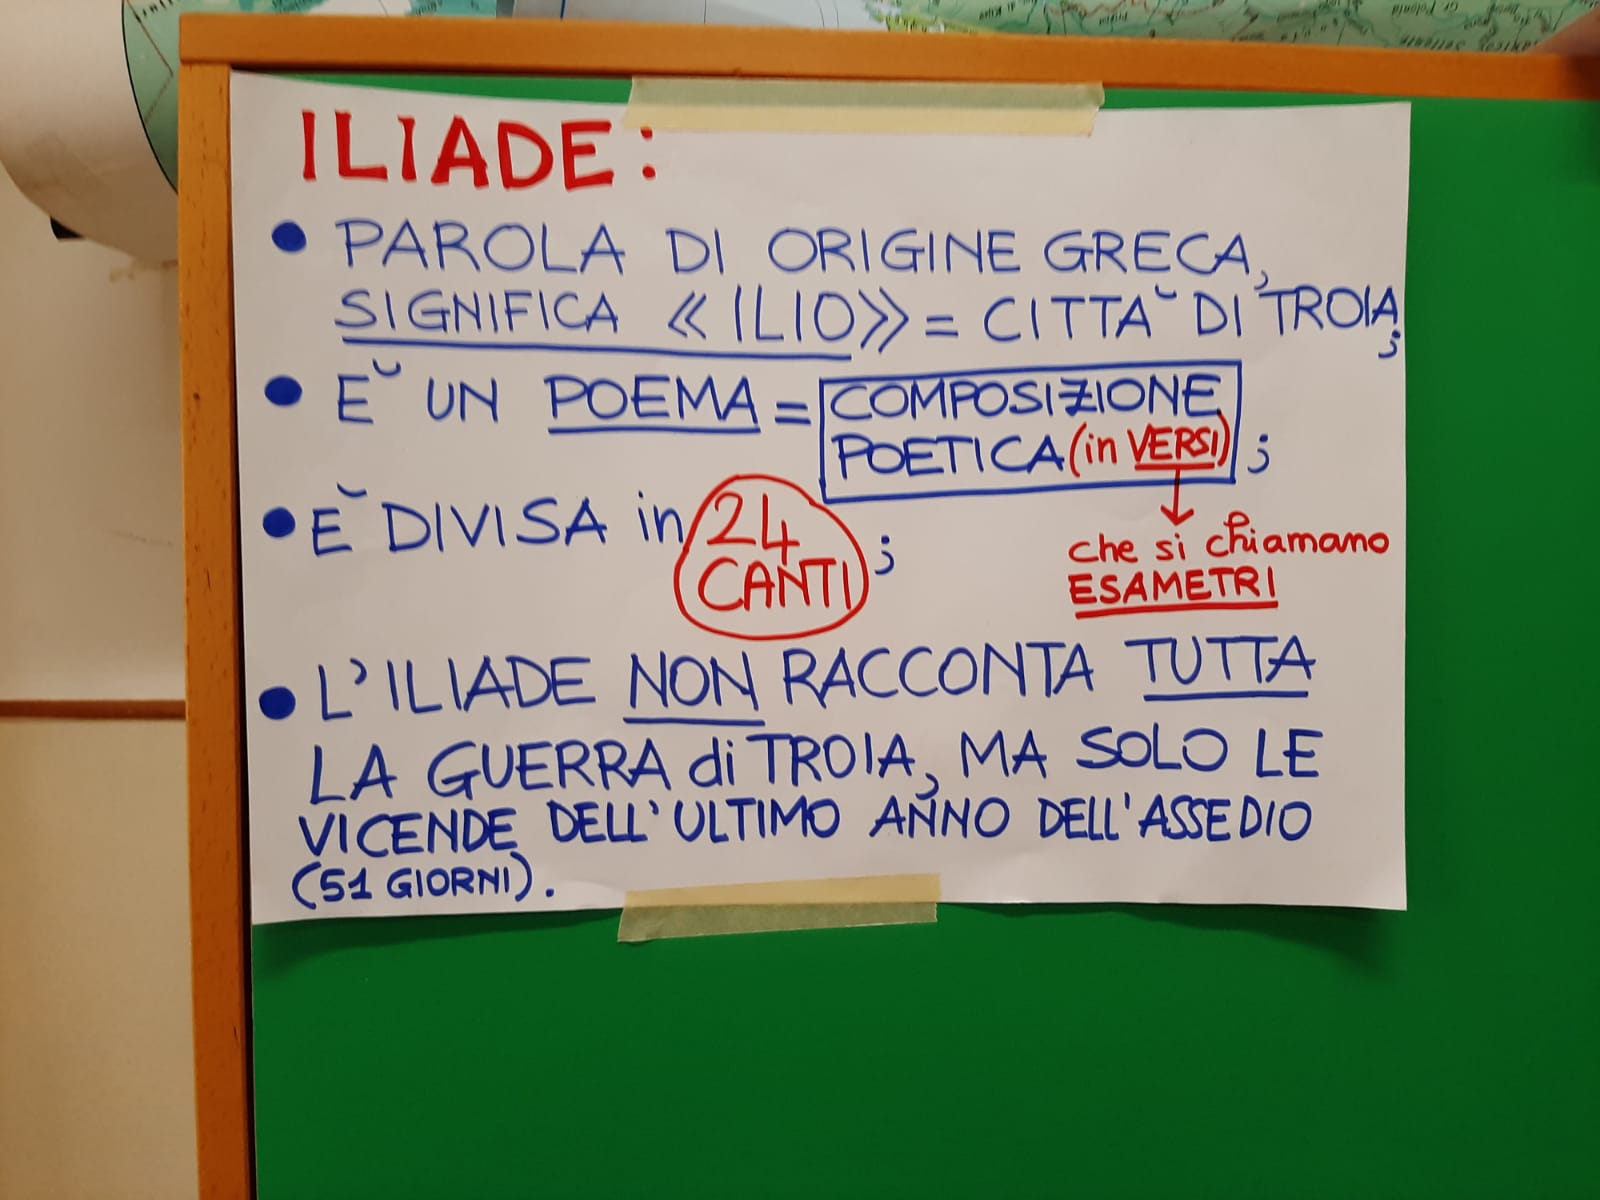 ILIADE:
• PAROLA DI ORIGINE GRECA,
SIGNIFICA «ILIO» = CITTÀ DI TROIA;
• È UN POEMA = COMPOSIZIONE
POETICA (in VERSI);
• È DIVISA in 24
CANTI;
che si chiamano
ESAMETRI
• L'ILIADE NON RACCONTA TUTTA
LA GUERRA di TROIA, MA SOLO LE
VICENDE DELL'ULTIMO ANNO DELL'ASSEDIO
(51 GIORNI).